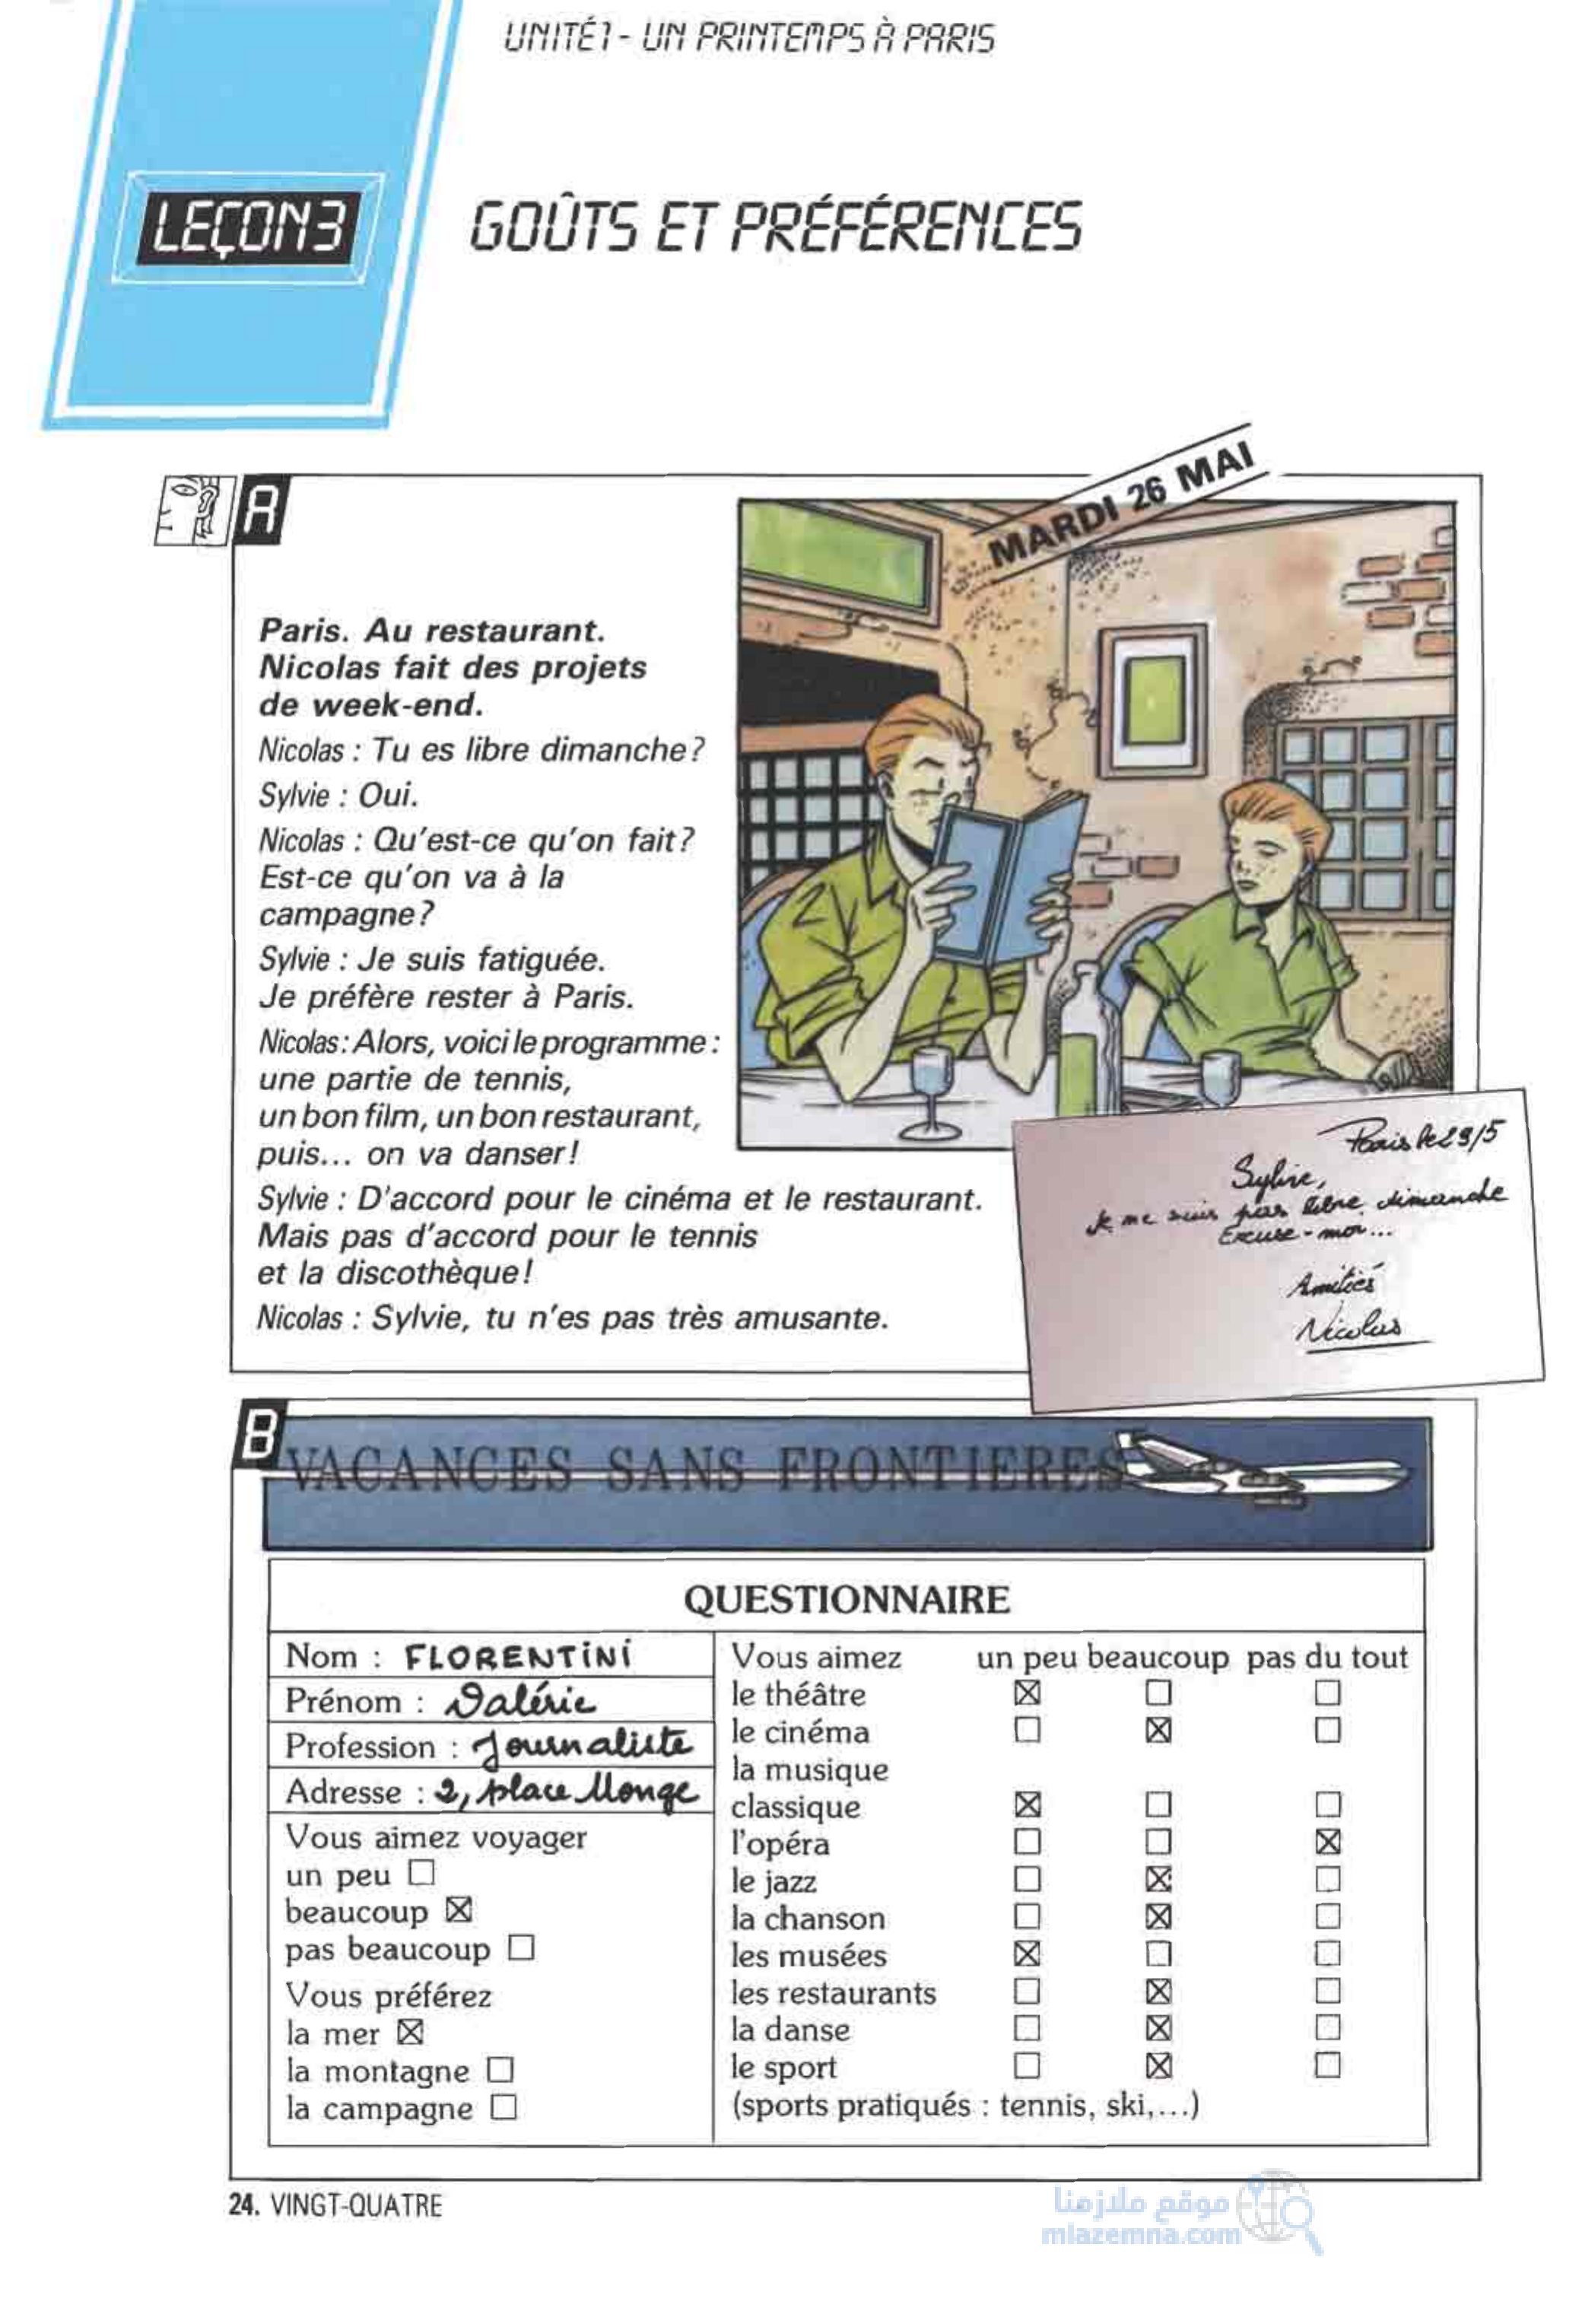 UNITÉ 1 - UN PRINTEMPS À PARIS
LEÇON 3
GOÛTS ET PRÉFÉRENCES
A
MARDI 26 MAI
Paris. Au restaurant.
Nicolas fait des projets
de week-end.
Nicolas : Tu es libre dimanche ?
Sylvie : Oui.
Nicolas : Qu'est-ce qu'on fait ?
Est-ce qu'on va à la
campagne ?
Sylvie : Je suis fatiguée.
Je préfère rester à Paris.
Nicolas : Alors, voici le programme :
une partie de tennis,
un bon film, un bon restaurant,
puis... on va danser !
Sylvie : D'accord pour le cinéma et le restaurant.
Mais pas d'accord pour le tennis
et la discothèque !
Nicolas : Sylvie, tu n'es pas très amusante.
Paris le 29/5
Sylvie,
Je ne suis pas libre dimanche
Excuse-moi...
Amitiés
Nicolas
B
VACANCES SANS FRONTIERES
QUESTIONNAIRE
Nom : FLORENTINI
Prénom : Valérie
Profession : Journaliste
Adresse : 2, place Monge
Vous aimez voyager
un peu
beaucoup
pas beaucoup
Vous préférez
la mer
la montagne
la campagne
Vous aimez un peu beaucoup pas du tout
le théâtre
le cinéma
la musique
classique
l'opéra
le jazz
la chanson
les musées
les restaurants
la danse
le sport
(sports pratiqués : tennis, ski,...)
24. VINGT-QUATRE
موقع ملازمنا
mlazemna.com